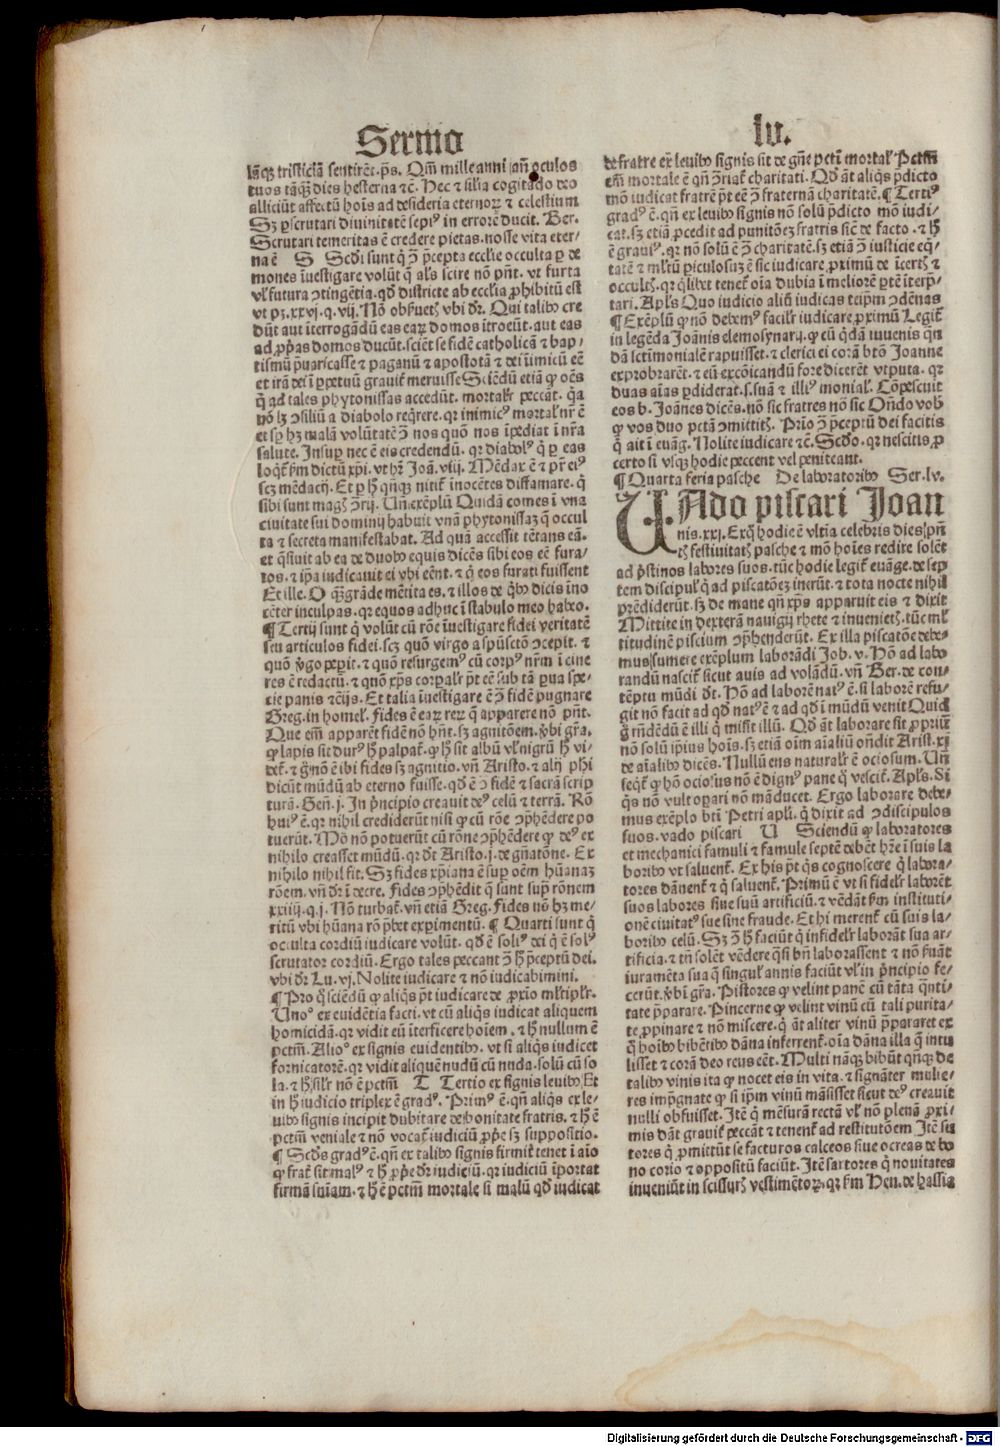 Sermo
lv.
lāqȝ tristiciā sentirēt. p̄s. Qm̄ mille anni an̄ oculos
tuos tāqȝ dies hesterna ⁊c̄. Hec ⁊ silia cogitādo deo
alliciūt affectū hoīs ad desideria eternoꝝ ⁊ celestium
Sȝ ꝑscrutari diuinitatē sepiꝰ in errorē ducit. Ber.
Scrutari temeritas ē credere pietas. nosse vita eter⸗
na ē S Scd̄i sunt q̄ ꝯ p̄cepta ecclie occulta ꝑ de
mones īuestigare volūt q̄ als̄ scire nō pn̄t. vt furta
vl̓ futura ꝯtingētia. qd̓ districte ab ecclīa ꝓhibitū est
vt pȝ. xxvj. q. vij. Nō obs̓uetꝭ vbi dr̄. Qui talibꝰ cre
dūt aut īterrogādū eas eaꝝ domos ītroeūt. aut eas
ad ꝓp̄as domos ducūt. sciēt se fidē catholicā ⁊ bap⸗
tismū p̄uaricasse ⁊ paganū ⁊ apostotā ⁊ dei īimicū eē
et irā dei ī ꝑpetuū grauit̓ meruisse Sciēdū etiā ꝙ oēs
q̄ ad tales phytonissas accedūt. mortalr̓ peccāt. q̓a
nō hȝ ꝯsiliū a diabolo req̓rere. qr inimicꝰ mortal̓ nr̄ ē
et sꝑ hȝ malā volūtatē ꝯ nos quō nos īpediat ī nr̄a
salute. Insuꝑ nec ē eis credendū. qr diabolꝰ q̄ ꝑ eas
loqt̓ ẜm dictū xp̄i. vt hr̄ Joā. viij. Mēdax ē ⁊ pr̄ eiꝰ
scȝ mēdacij. Et ꝑ hꝰ qn̄qȝ nitit̓ īnocētes diffamare. q̄
sibi sunt magꝭ ꝯrij. Un̄ exēplū Quidā comes ī vna
ciuitate sui dominij habuit vnā phytonissaȝ q̄ occul
ta ⁊ secreta manifestabat. Ad quā accessit tētans eā.
et q̄siuit ab ea de duobꝰ equis dicēs sibi eos eē fura⸗
tos. ⁊ ip̄a iudicauit ei vbi eēnt. ⁊ q̄ eos furati fuissent
Et ille. O qȝ grāde mētita es. ⁊ illos de q̄bꝰ dicis ino
cēter inculpas. qr equos adhuc ī stabulo meo habeo.
¶ Tertij sunt q̄ volūt cū rōe īuestigare fidei veritatē
seu articulos fidei. scȝ quō virgo a spūsctō ꝯcepit. ⁊
quō v̓go peꝑit. ⁊ quō resurgemꝰ cū corpꝰ nr̄m ī cine
res ē redactū. ⁊ quō xp̄s corꝑalr̓ pt̄ eē sub tā ꝑua spe⸗
cie panis ⁊ c̄ijs. Et talia īuestigare ē ꝯ fidē pugnare
Greg. in homel̓. fides ē eaꝝ reꝝ q̄ apparere nō pn̄t.
Que em̄ apparēt fidē nō hn̄t. sȝ agnitōem. v̓bi gr̄a.
ꝙ lapis sit durꝰ hꝰ palpat̓. ꝙ hꝰ sit albū vl̓ nigrū hꝰ vi⸗
det̓. ⁊ g̓ nō ē ibi fides sȝ agnitio. vn̄ Aristo. ⁊ alij phi
dicūt mūdū ab eterno fuisse. qd̓ ē ꝯ fidē ⁊ sacrā scrip
turā. Gen̄. j. In p̓ncipio creauit deꝰ celū ⁊ terrā. Rō
huiꝰ ē. qr nihil crediderūt nisi ꝙ cū rōe ꝯp̄hēdere po
tuerūt. Mō nō potuerūt cū rōne ꝯp̄hēdere ꝙ deꝰ ex
nihilo creasset mūdū. qr dt̄ Aristo. j. de gn̄atōne. Ex
nihilo nihil fit. Sȝ fides xp̄iana ē suꝑ oēm hūanaȝ
rōem. vn̄ dr̄ ī decre. Fides ꝯp̄hēdit q̄ sunt supͬ rōnem
xxiiij. q. j. Nō turbat̓. vn̄ etiā Greg. Fides nō hȝ me⸗
ritū vbi hūana rō p̄bet exꝑimentū. ¶ Quarti sunt q̄
occulta cordiū iudicare volūt. qd̓ ē soliꝰ dei q̄ ē solꝰ
scrutator cordiū. Ergo tales peccant ꝯ hꝰ p̄ceptū dei.
vbi dr̄ Lu. vj. Nolite iudicare ⁊ nō iudicabimini.
¶ Pro q̓ sciēdū ꝙ aliq̓s pt̄ iudicare de ꝓxīo ml̓tiplr̓.
Uno° ex euidētia facti. vt cū aliq̓s iudicat aliquem
homicidā. qr vidit eū īterficere hoīem. ⁊ hꝰ nullum ē
pctm̄. Alio° ex signis euidentibꝰ. vt si aliq̓s iudicet
fornicatorē. qr vidit aliquē nudū cū nuda. solū cū so
la. ⁊ hꝰ silr̓ nō ē pctm̄ T Tertio ex signis leuibꝰ Et
in hꝰ iudicio triplex ē gradꝰ. Primꝰ ē. qn̄ aliq̓s ex le⸗
uibꝰ signis incipit dubitare de bonitate fratris. ⁊ hꝰ ē
pctm̄ veniale ⁊ nō vocat̓ iudiciū ꝓp̓e sȝ suppositio.
¶ Scd̓s gradꝰ ē. qn̄ ex talibꝰ signis firmit̓ tenet ī aīo
ꝙ frat̓ sit malꝰ ⁊ hꝰ ꝓp̓e dr̄ iudiciū. qr iudiciū īportat
firmā sn̄iam. ⁊ hꝰ ē pctm̄ mortale si malū qd̓ iudicat
de fratre ex leuibꝰ signis sit de gn̄e pctī mortal̓ Pctm̄
em̄ mortale ē qn̄ ꝯriat̓ charitati. Qd̓ āt aliq̓s p̄dicto
mō iudicat fratrē pt̄ eē ꝯ fraternā charitatē. ¶ Tertiꝰ
gradꝰ ē. qn̄ ex leuibꝰ signis nō solū p̄dicto mō iudi⸗
cat. sȝ etiā ꝓcedit ad punitōeȝ fratris siē de facto. ⁊ hꝰ
ē grauiꝰ. qr nō solū ē ꝯ charitatē. sȝ etiā ꝯ iusticie eq̓⸗
tatē ⁊ ml̓tū ꝑiculosuȝ ē sic iudicare ꝓximū de īcertꝭ ⁊
occultꝭ. qr q̓libet tenet̓ oīa dubia ī meliorē ꝑtē īterp̓⸗
tari. Apl̓s Quo iudicio aliū iudicas teip̄m ꝯdēnas
¶ Exēplū ꝙ nō debemꝰ facilr̓ iudicare ꝓximū Legit̓
in legēda Joānis elemosynarij. ꝙ cū q̓dā iuuenis qn̄
dā sctīmonialē rapuisset. ⁊ clerici ei corā btō Joanne
exprobrarēt. ⁊ eū excōicandū fore dicerēt vtputa. qr
duas aīas ꝑdiderat. s. suā ⁊ illiꝰ monial̓. Cōpescuit
eos b. Joānes dicēs. nō sic fratres nō sic Ondo vobꝭ
ꝙ vos duo pctā ꝯmittitꝭ. Prīo ꝯ p̄ceptū dei facitis
q̄ ait ī euāg. Nolite iudicare ⁊c̄. Scd̓o. qr nescitis ꝓ
certo si vsqȝ hodie peccent vel peniteant.
¶ Quarta feria pasche De laboratoribꝰ Ser. lv.
UAdo piscari Joan
nis. xxj. Ex q̓ hodie ē vltīa celebris dies p̄n̄
tꝭ festiuitatꝭ pasche ⁊ mō hoīes redire solēt
ad p̓stinos labores suos. tūc hodie legit̓ euāge. de sep
tem discipul̓ q̄ ad piscatōeȝ inerūt. ⁊ tota nocte nihil
prēdiderūt. sȝ de mane qn̄ xp̄s apparuit eis ⁊ dixit
Mittite in dexterā nauigij rhete ⁊ inuenietꝭ. tūc ml̓
titudinē piscium ꝯp̄henderūt. Ex illa piscatōe debe⸗
mus sumere exēplum laborādi Job. v. Hō ad labo
randū nascit̓ sicut auis ad volādū. vn̄ Ber. de con⸗
tēptu mūdi dt̄. Hō ad laborē natꝰ ē. si laborē refu⸗
git nō facit ad qd̓ natꝰ ē ⁊ ad qd̓ ī mūdū venit Quid
g̓ rn̄dēdū ē illi q̄ misit illū. Qd̓ āt laborare sit ꝓpriū
nō solū ip̄ius hoīs. sȝ etiā oīm aīaliū on̄dit Arist. xj
de aīalibꝰ dicēs. Nullū ens naturalr̓ ē ociosum. Un̄
seqt̓ ꝙ hō ociosus nō ē dignꝰ pane q̄ vescit̓. Apl̓s. Si
q̓s nō vult oꝑari nō māducet. Ergo laborare debe⸗
mus exēplo btī Petri apl̓i. q̄ dixit ad ꝯdiscipulos
suos. vado piscari U Sciendū ꝙ laboratores
et mechanici famuli ⁊ famule septē debēt hr̄e ī suis la
boribꝰ vt saluent̓. Ex his pt̄ q̓s cognoscere q̄ labora⸗
tores dānent̓ ⁊ q̄ saluent̓. Primū ē vt si fidelr̓ laborēt
suos labores siue suū artificiū. ⁊ vēdāt ẜm instituti⸗
onē ciuitatꝭ sue sine fraude. Et hi merent̓ cū suis la⸗
boribꝰ celū. Sȝ ꝯ hꝰ faciūt q̄ infidelr̓ laborāt sua ar⸗
tificia. ⁊ tn̄ solēt vēdere q̓si bn̄ laborassent ⁊ nō s̓uāt
iuramēta sua q̄ singul̓ annis faciūt vl̓ in p̓ncipio fe⸗
cerūt. v̓bi gr̄a. Pistores ꝙ velint panē cū tāta q̓nti⸗
tate p̄parare. Pincerne ꝙ velint vinū cū tali purita⸗
te ꝓpinare ⁊ nō miscere. q̄ āt aliter vinū p̄pararet ex
q̓ hoībꝰ bibētibꝰ dāna inferrent̓. oīa dāna illa q̄ intu
lisset ⁊ corā deo reus eēt. Multi nāqȝ bibūt qn̄qȝ de
talibꝰ vinis ita ꝙ nocet eis in vita. ⁊ signāter mulie⸗
res imp̄gnate ꝙ si ip̄m vinū māsisset sicut deꝰ creauit
nulli obfuisset. Itē q̄ mēsurā rectā vl̓ nō plenā ꝓxi⸗
mis dāt grauit̓ peccāt ⁊ tenent̓ ad restitutōem Itē su
tores q̄ ꝓmittūt se facturos calceos siue ocreas de bo
no corio ⁊ oppositū faciūt. Itē sartores q̄ nouitates
inueniūt in scissurꝭ vestimētoꝝ. qr ẜm Hen. de hassia
Digitalisierung gefördert durch die Deutsche Forschungsgemeinschaft - DFG